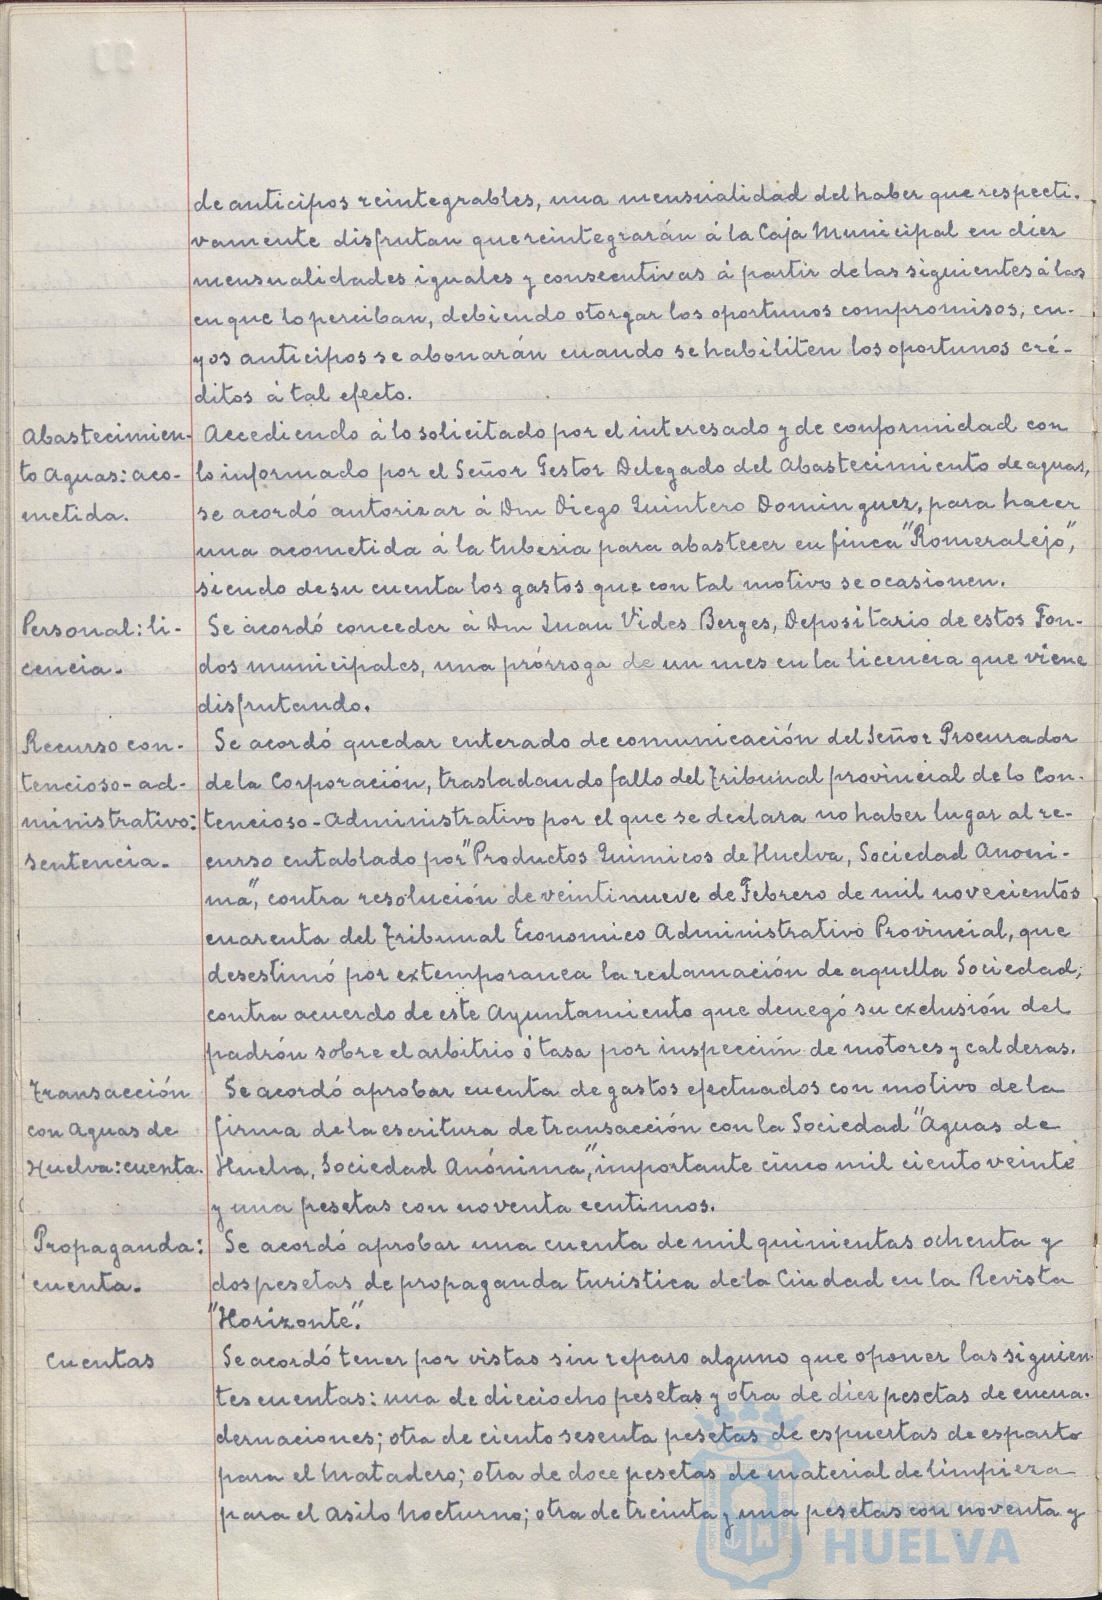 de anticipos reintegrables, una mensualidad del haber que respecti-
vamente disfrutan que reintegrarán á la Caja Municipal en diez
mensualidades iguales y consecutivas á partir de las siguientes á las
en que lo perciban, debiendo otorgar los oportunos compromisos, cu-
yos anticipos se abonarán cuando se habiliten los oportunos cré-
ditos á tal efecto.
Abastecimien-
to Aguas: aco-
metida.
Accediendo á lo solicitado por el interesado y de conformidad con
lo informado por el Señor Gestor Delegado del Abastecimiento de aguas,
se acordó autorizar á Don Diego Quintero Dominguez, para hacer
una acometida á la tuberia para abastecer en finca "Romeralejo",
siendo de su cuenta los gastos que con tal motivo se ocasionen.
Personal: li-
cencia.-
Se acordó conceder á Don Juan Vides Berges, Depositario de estos Fon-
dos municipales, una prórroga de un mes en la licencia que viene
disfrutando.
Recurso con-
tencioso-ad-
ministrativo:
sentencia.-
Se acordó quedar enterado de comunicación del Señor Procurador
de la Corporación, trasladando fallo del Tribunal provincial de lo Con-
tencioso-Administrativo por el que se declara no haber lugar al re-
curso entablado por "Productos Quimicos de Huelva, Sociedad Anoni-
ma", contra resolución de veintinueve de Febrero de mil novecientos
cuarenta del Tribunal Economico Administrativo Provincial, que
desestimó por extemporanea la reclamación de aquella Sociedad,
contra acuerdo de este Ayuntamiento que denegó su exclusión del
padrón sobre el arbitrio ó tasa por inspección de motores y calderas.
Transacción
con Aguas de
Huelva: cuenta.
Se acordó aprobar cuenta de gastos efectuados con motivo de la
firma de la escritura de transacción con la Sociedad "Aguas de
Huelva, Sociedad Anónima", importante cinco mil ciento veinte
y una pesetas con noventa centimos.
Propaganda:
cuenta.-
Se acordó aprobar una cuenta de mil quinientas ochenta y
dos pesetas de propaganda turistica de la Ciudad en la Revista
"Horizonte".
Cuentas
Se acordó tener por vistas sin reparo alguno que oponer las siguien-
tes cuentas: una de dieciocho pesetas y otra de diez pesetas de encua-
dernaciones; otra de ciento sesenta pesetas de espuertas de esparto
para el Matadero; otra de doce pesetas de material de limpieza
para el Asilo Nocturno; otra de treinta y una pesetas con noventa y
Ayuntamiento de
HUELVA